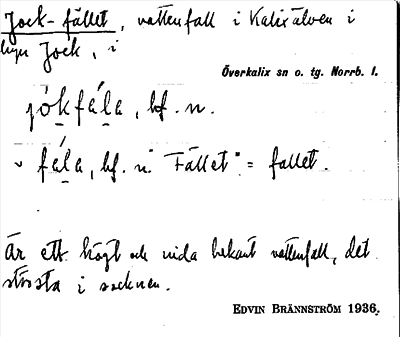 Jock-fället, vattenfall i Kalixälven i
byn Jock, i
Överkalix sn o. tg. Norrb. l.
jókfála, bf. n.
v fála, bf. n. "Fället" = fallet.
Är ett högt och vida bekant vattenfall, det
största i socknen.
EDVIN BRÄNNSTRÖM 1936.